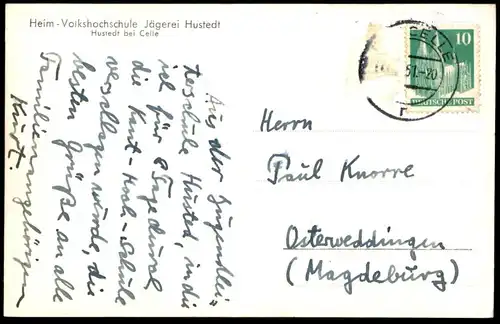 Heim-Volkshochschule Jägerei Hustedt
Hustedt bei Celle
Aus der Jugendlei=
terschule Husted, in die
ich für 8 Tage durch
die Kant-Hoch-Schule
verschlagen wurde, die
besten Grüße an alle
Familienangehörigen
Kurt.
CELLE
51.-20
r
10
DEUTSCHE POST
Herrn
Paul Knorre
Osterweddingen
(Magdeburg)